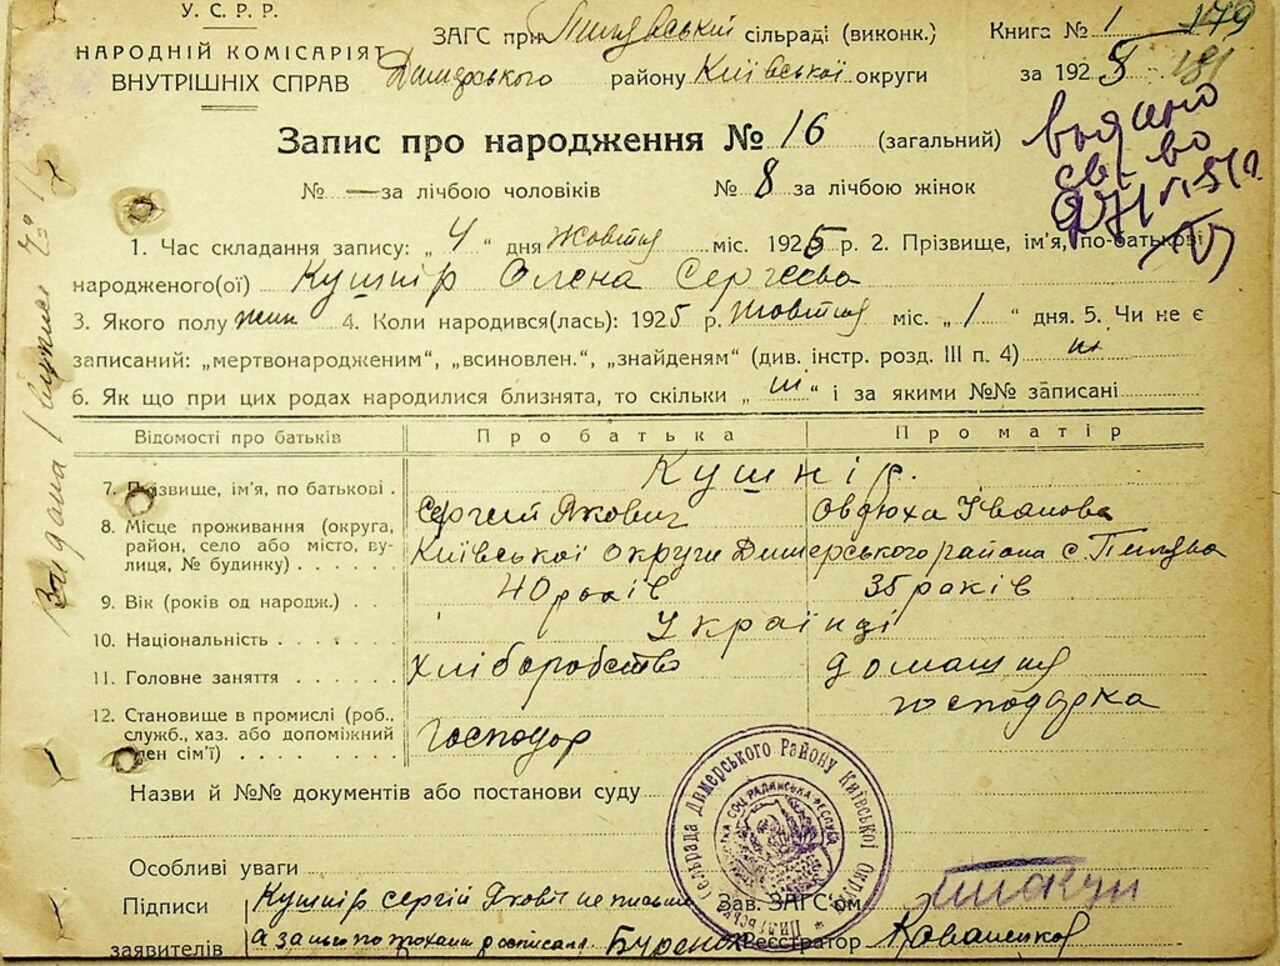 У. С. Р. Р.
НАРОДНІЙ КОМІСАРІЯТ
ВНУТРІШНІХ СПРАВ
ЗАГС при сільраді (виконк.)
Димерського району Київської округи
Книга № 1 179
за 1925 181
Запис про народження № 16 (загальний)
№ — за лічбою чоловіків № 8 за лічбою жінок
1. Час складання запису: „ 4 “ дня жовтня міс. 1925 р. 2. Прізвище, ім'я, по-батькові
народженого(ої) Кушнір Олена Сергієва
3. Якого полу жін 4. Коли народився(лась): 1925 р. жовтня міс. „ 1 “ дня. 5. Чи не є
записаний: „мертвонародженим“, „всиновлен.“, „знайденям“ (див. інстр. розд. III п. 4)
6. Як що при цих родах народилися близнята, то скільки „ “ і за якими №№ записані
Відомості про батьків Про батька Про матір
7. Прізвище, ім'я, по батькові . Кушнір.
Сергій Якович Овдюха Іванова
8. Місце проживання (округа, район, село або місто, вулиця, № будинку) Київської округи Димерського района с.
9. Вік (років од народж.) 40 років 35 років
10. Національність Українці
11. Головне заняття хліборобство домашня
господарка
12. Становище в промислі (роб., служб., хаз. або допоміжний член сім'ї) Господар
Назви й №№ документів або постанови суду
Особливі уваги
Підписи Кушнір Сергій Якович Зав. ЗАГС'ом
заявителів а за нього Реєстратор Коваленко
Сільрада Димерського Району Київської Округи